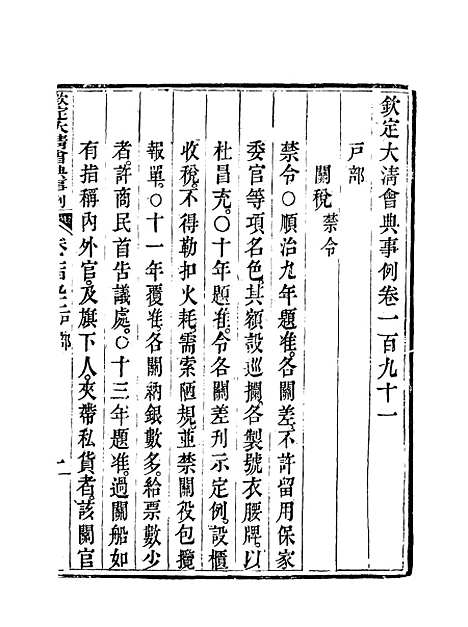 欽定大清會典事例卷一百九十一
戶部
關稅禁令
禁令○順治九年題准各關差不許留用保家
委官等項名色其額設巡攔各製號衣腰牌以
杜昌充○十年題准令各關差刊示定例設櫃
收稅不得勒扣火耗需索陋規並禁關役包攬
報單○十一年覆准各關納銀數多給票數少
者許商民首告議處○十三年題准過關船如
有指稱內外官及旗下人夾帶私貨者該關官
欽定大清會典事例
戶部